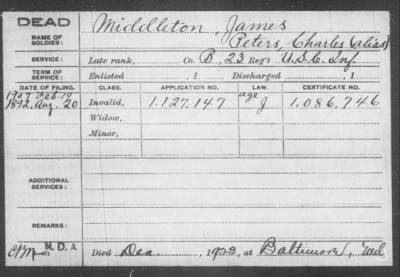 DEAD
NAME OF SOLDIER:
Middleton, James
Peters, Charles (alias)
SERVICE:
Late rank, Co. B, 23 Reg't U.S.C. Inf.
TERM OF SERVICE:
Enlisted , 1 Discharged , 1
DATE OF FILING. CLASS. APPLICATION NO. LAW. CERTIFICATE NO.
1907 Feb. 19 age
1892, Aug. 20 Invalid, 1.127,147 J 1,086,746
Widow,
Minor,
ADDITIONAL SERVICES:
REMARKS:
N.D.A.
Died Dec. , 1923, at Baltimore, Md